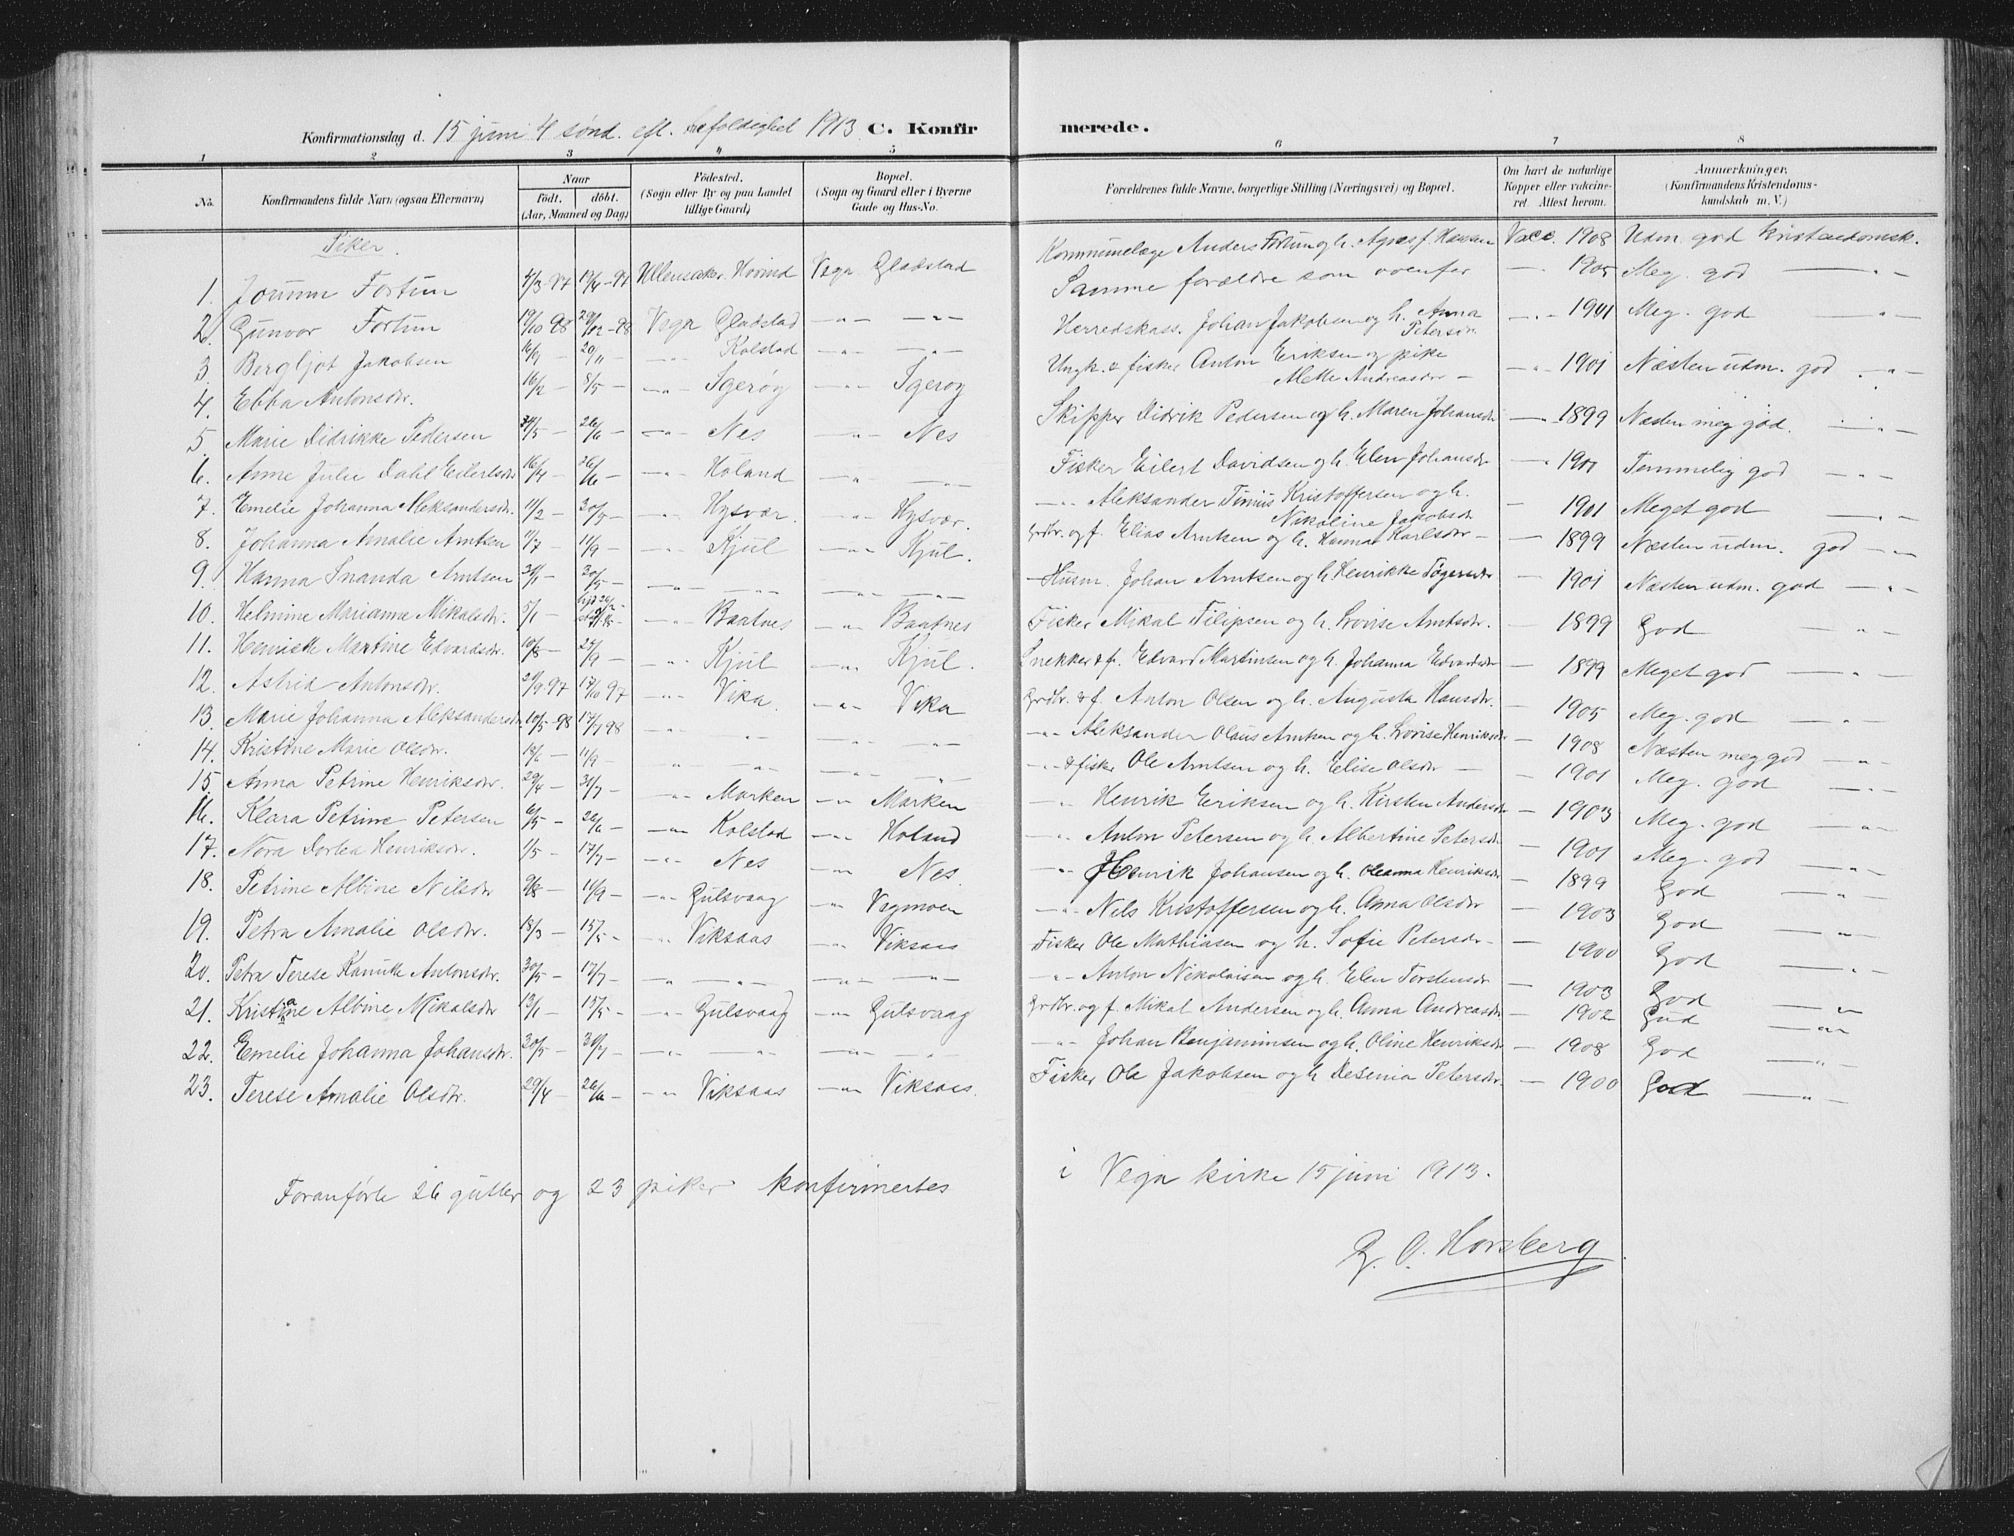 Konfirmationsdag d. 15 juni 4 sönd. eft. trefoldighet 1913 C. Konfir merede.
1 2 3 4 5 6 7 8
No. Konfirmandens fulde Navn (ogsaa Efternavn) Naar födt. döbt. (Aar, Maaned og Dag) Födested. (Sogn eller By og paa Landet tillige Gaard) Bopæl. (Sogn og Gaard eller i Byerne Gade og Hus-No. Forældrenes fulde Navne, borgerlige Stilling (Næringsvei) og Bopæl. Om havt de naturlige Kopper eller vakcineret. Attest herom. Anmærkninger. (Konfirmandens Kristendomskundskab m. V.)
Piker.
1. Jorunn Fortun 4/3-97 19/4-97 Ullensaker Hovind Vega Gladstad Kommunelæge Anders Fortun og h. Agnes f. Hansen Vacc. 1908 Udm. god kristendomsk.
2. Gunvor Fortun 19/10-98 29/12-98 Vega Gladstad -"- -"- Samme forældre som ovenfor -"- 1905 Meg. god -"-
3 Bergljot Jakobsen 16/9 - 20/11 - -"- Kolstad -"- -"- Herredskass. Johan Jakobsen og h. Anna Petersdr. -"- 1901 Meg. god -"-
4. Ebba Antonsdr. 16/2 - 8/5 - -"- Igerøy -"- Igerøy Ungk. & fisker Anton Eriksen og pike Mette Andreasdr - -"- 1901 Næsten udm. god -"-
5 Marie Didrikke Pedersen 24/5 - 26/6 - -"- Nes -"- Nes Skipper Didrik Pedersen og h. Maren Johansdr - 1899 Næsten meg god. -"-
6. Anne Julie Dahl Eilertsdr 16/4 - 26/6 - -"- Holand -"- Fisker Eilert Davidsen og h. Elen Johansdr - 1901 Temmelig god -"-
7. Emelie Johanna Aleksandersdr. 11/2 - 20/5 - -"- Hysvær. -"- Hysvær. -"- Aleksander Tinius Kristoffersen og h. Nikoline Jakobsdr - 1901 Meget god -"-
8. Johanna Amalie Arntsen 11/7 - 11/9 - -"- Kjul -"- Kjul. Grdbr. og f. Elias Arntsen og h. Hanna Karlsdr - 1899 Næsten udm. god -"-
9. Hanna Inanda Arntsen 31/1 - 30/5 - -"- -"- -"- -"- Husm. Johan Arntsen og h. Henrikke Jögersdr - 1901 Næsten udm. god -"-
10. Helmine Marianna Mikalsdr. 5/1 - -"- Baatnes -"- Baatnes Fisker Mikal Filipsen og h. Lovise Arntsdr. - 1899 God -"-
11. Henriette Martine Edvardsdr. 10/8 - 25/9 - -"- Kjul -"- Kjul. Snekker & f. Edvard Martinsen og h. Johanna Edvardsdr - 1899 Meget god -"-
12. Astrid Antonsdr. 29/9-97 17/10 97 -"- Vika. -"- Vika Grdbr. & f. Anton Olsen og h. Augusta Hansdr. - 1905 Meg. god -"-
13. Marie Johanna Aleksandersdr 10/5-98 17/7 98 -"- -"- -"- -"- -"- Aleksander Olaus Arntsen og h. Lovise Henriksdr - 1908 Næsten meg god -"-
14. Kristine Marie Olsdr. 18/6 - 11/9 - " -"- -"- " -"- & fisker Ole Arntsen og h. Elise Olsdr - 1901 Meg. god -"-
15. Anna Petrine Henriksdr. 29/4 - 31/7 - -"- Marken -"- Marken -"- Henrik Eriksen og h. Kirsten Andersdr - 1903 Meg. god -"-
16. Klara Petrine Petersen 6/5 - 26/6 - -"- Kolstad -"- Holand -"- Anton Petersen og h. Albertine Petersdr - 1901 Meg. god -"-
17. Nora Dortea Henriksdr. 1/5 - 17/7 - -"- Nes -"- Nes. -"- Henrik Johansen og h. Oleanna Henriksdr - 1899 God "
18. Petrine Albine Nilsdr 9/8 - 11/9 - -"- Gulsvaag -"- Vegmoen -"- Nils Kristoffersen og h. Anna Olsdr - 1903 God -"-
19. Petra Amalie Olsdr. 18/3 - 15/5 - -"- Viksaas -"- Viksaas Fisker Ole Mathiasen og h. Sofie Petersdr - - 1900 God -"-
20. Petra Terese Kamitte Antonsdr. 30/5 - 17/7 - " -"- " -"- -"- Anton Nikolaisen og h. Elen Torstensdr - 1903 God -"-
21. Kristiane Albine Mikalsdr 13/1 - 15/5 - -"- Gulsvaag -"- Gulsvaag Grdbr. og f. Mikal Andersen og h. Anna Andreasdr - 1902 God -"-
22. Emelie Johanna Johansdr. 20/5 - 30/7 - -"- -"- -"- " -"- Johan Benjaminsen og h. Oline Henriksdr - 1908 God -"-
23. Terese Amalie Olsdr. 29/4 - 26/6 - -"- Viksaas -"- Viksaas. Fisker Ole Jakobsen og h. Desenia Petersdr. - 1900 God -"-
Foranførte 26 gutter og 23 piker konfirmertes i Vega kirke 15 juni 1913.
G. O. Horsberg